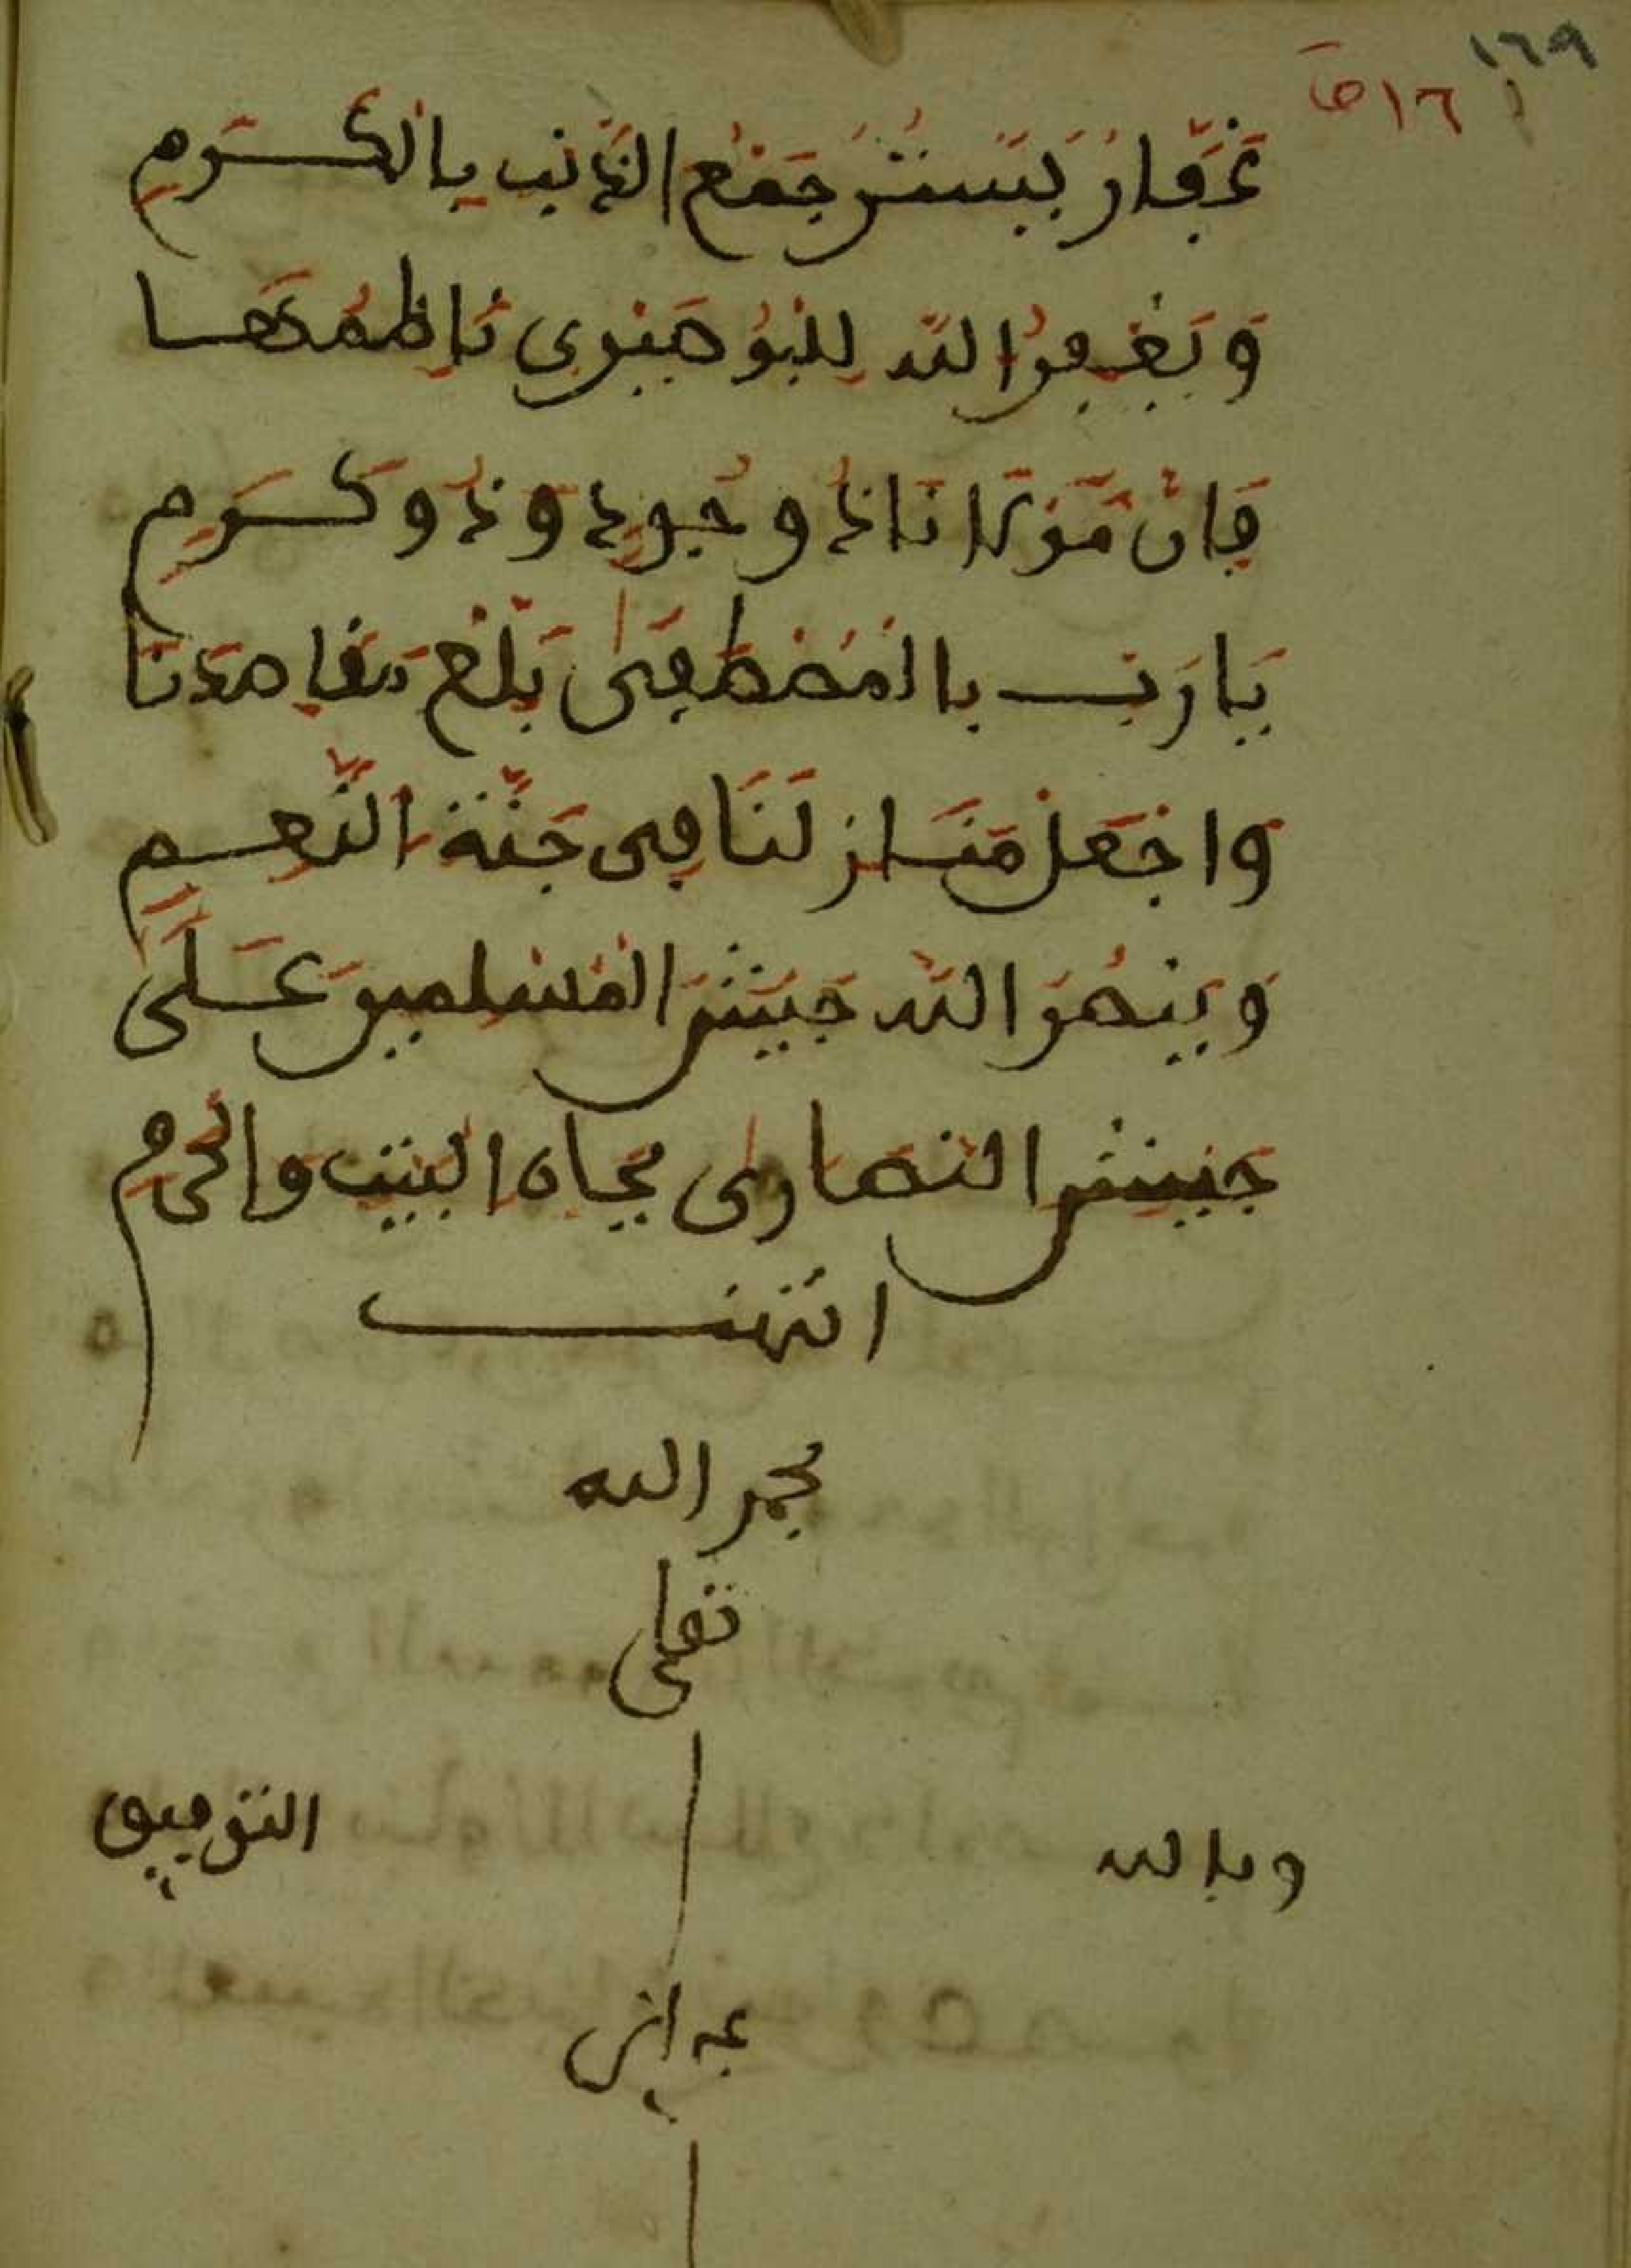 ١٦٩
١٦١
غَفَّارُ يَسْتُرُ جَمْعَ الذَّنْبِ بِالْكَرَمِ
وَيَغْفِرُ اللَّه لِلْبُوصِيرِي نَاظِمَهَا
فَإِنَّ مَوْلَانَا ذُو جُودٍ وَذُو كَرَمِ
يَا رَبِّ بِالْمُصْطَفَى بَلِّغْ مَقَاصِدَنَا
وَاجْعَلْ مَنَازِلَنَا فِي جَنَّةِ النَّعِمِ
وَيَنْصُرَ اللَّه جَيْشَ الْمُسْلِمِينَ عَلَى
جَيْشِ النَّصَارَى بِجَاهِ الْبَيْتِ وَالْحَرَمِ
انتهت
بحمد الله
تعلى
وبالله
التوفيق